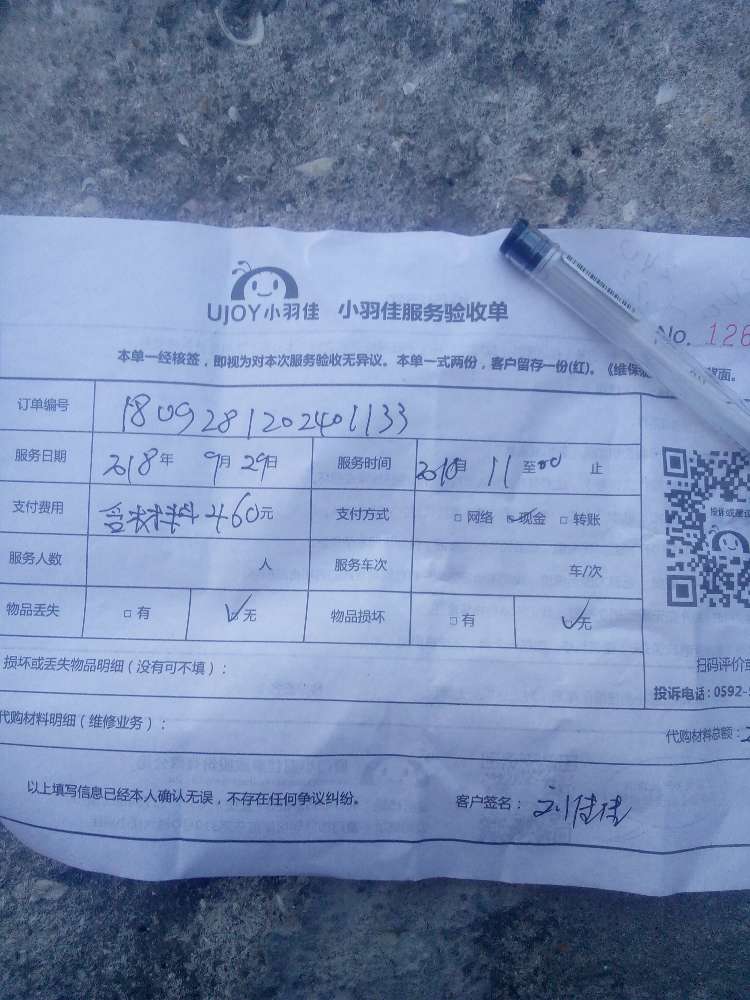 UJOY小羽佳 小羽佳服务验收单
No. 126
本单一经核签，即视为对本次服务验收无异议。本单一式两份，客户留存一份(红)。《维保 背面。
订单编号 1809281202401133
服务日期 2018年 9月 29日 服务时间 11 至 止
支付费用 含材料 460元 支付方式 □ 网络 ☑ 现金 □ 转账
投诉或建议
服务人数 人 服务车次 车/次
物品丢失 □ 有 ☑ 无 物品损坏 □ 有 ☑ 无
损坏或丢失物品明细（没有可不填）：
扫码评价或
投诉电话：0592-
代购材料明细（维修业务）：
代购材料总额：
以上填写信息已经本人确认无误，不存在任何争议纠纷。 客户签名： 刘佳佳